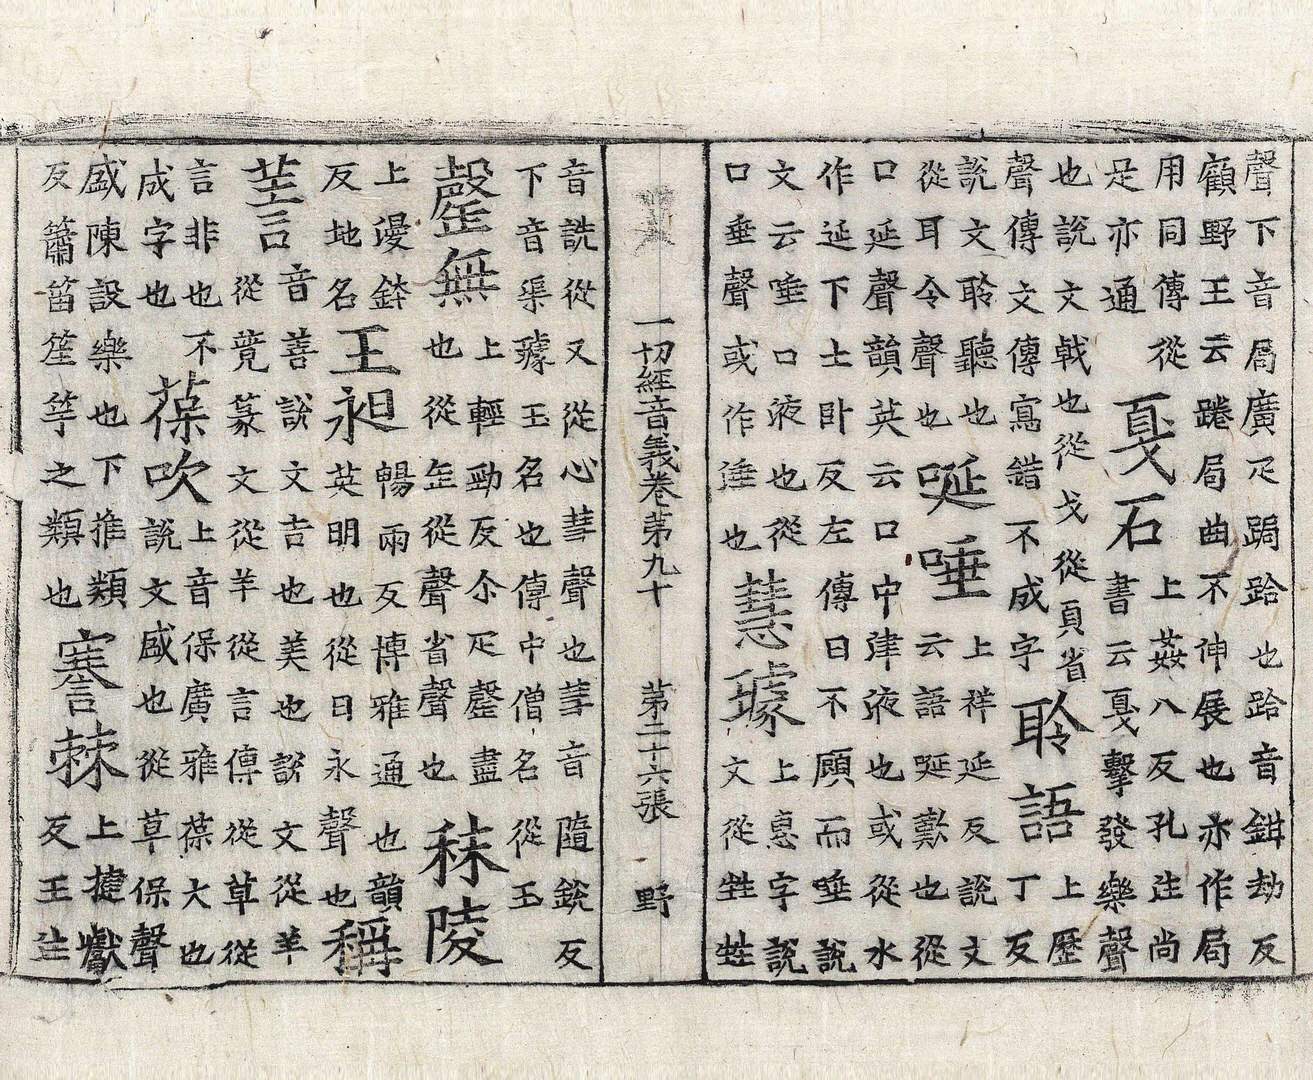 聲下音局廣疋跼跲也跲音鉗劫反
顧野王云踡局曲不伸展也亦作局
用同傳從
是亦通
戛石
上姦八反孔注尚
書云戛擊發樂聲
也說文戟也從戈從頁省
聲傳文傳寫錯不成字
聆語
上歷
丁反
說文聆聽也
從耳令聲也
唌唾
上祥延反說文
云語唌歎也從
口延聲韻英云口中津液也或從水
作延下土卧反左傳曰不顧而唾說
文云唾口液也從
口垂聲或作涶也
慧璩
上惠字說
文從甡甡
一切經音義卷第九十 第二十六張 野
音詵從又從心彗聲也彗音隨銳反
下音渠璩玉名也傳中僧名從玉
罄無
上輕勁反尒疋罄盡
也從缶從聲省聲也
秣陵
上漫鉢
反地名
王昶
暢兩反博雅通也韻
英明也從日永聲也
稱
言
音善說文吉也美也說文從羊
從竸篆文從羊從言傳從草從
言非也不
成字也
葆吹
上音保廣雅葆大也
說文盛也從草保聲
盛陳設樂也下推類
反簫笛笙竽之類也
謇棘
上揵獻
反王注